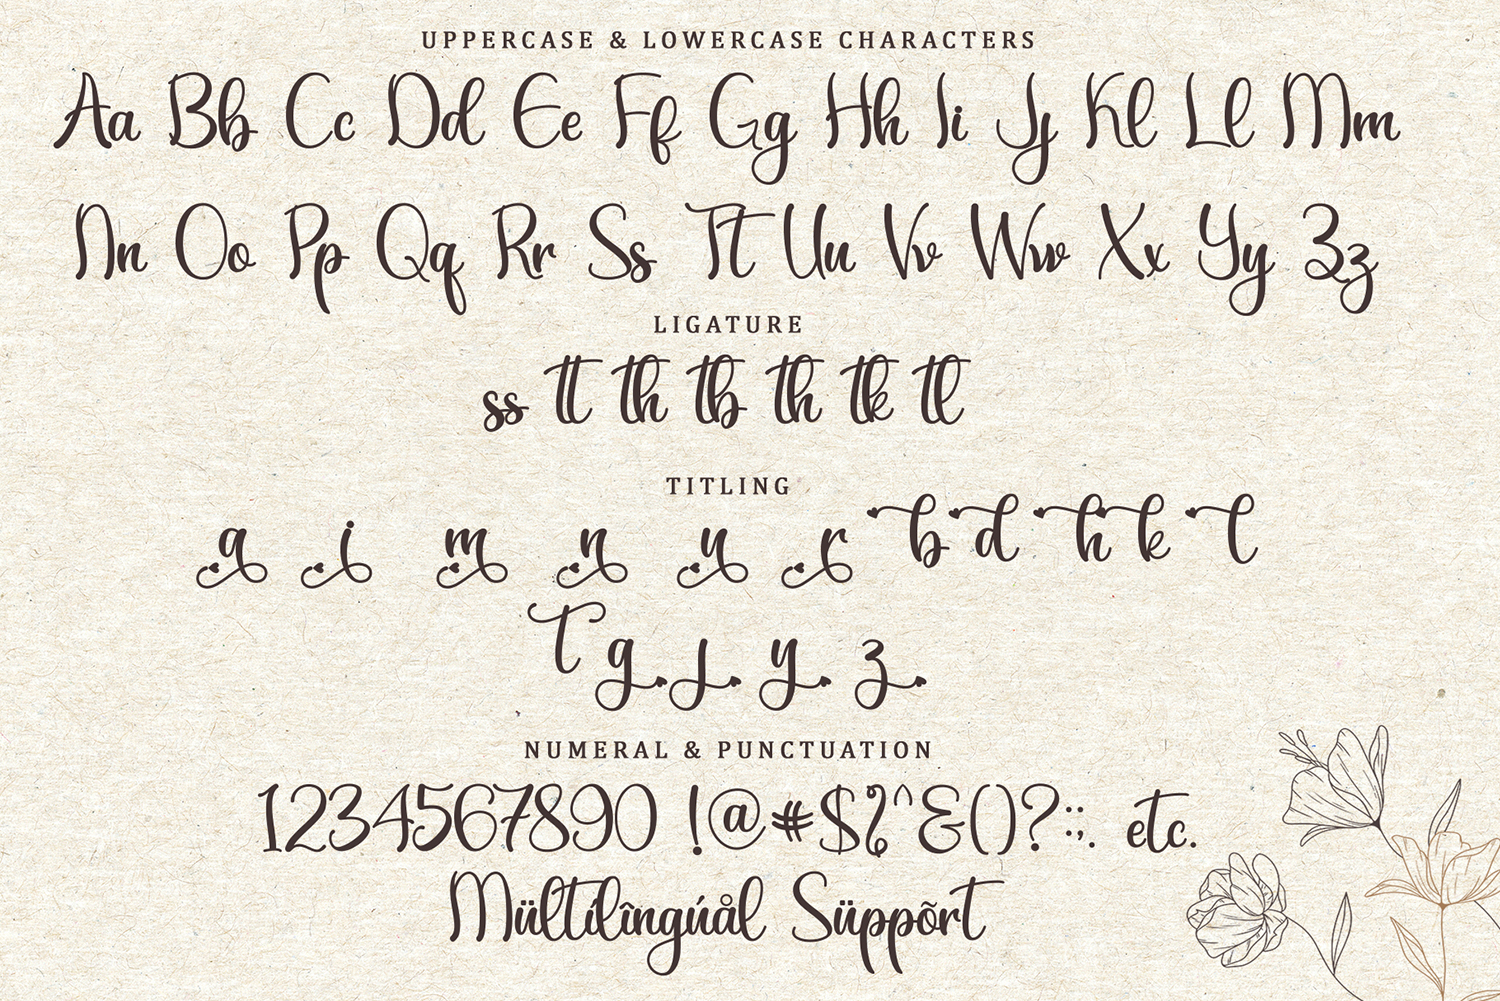 UPPERCASE & LOWERCASE CHARACTERS
Aa Bb Cc Dd Ee Ff Gg Hh Ii Jj Kl Ll Mm
Nn Oo Pp Qq Rr Ss Tt Uu Vv Ww Xx Yy Zz
LIGATURE
ss tt th tb th tk tl
TITLING
a i m n u r b d h k l
t g j y z
NUMERAL & PUNCTUATION
1234567890 !@#$%^&()?:;. etc.
Mültílîngúål Süppõrt